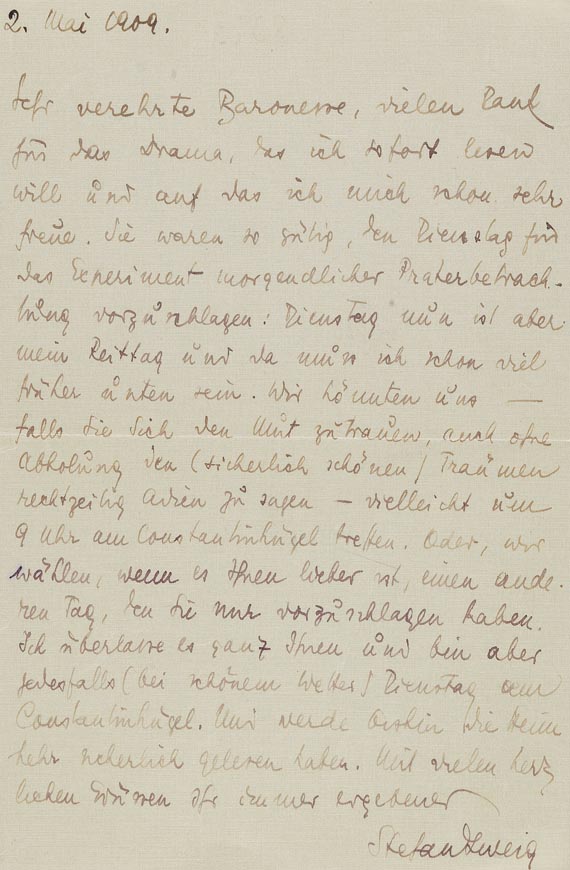 2. Mai 1909.
Sehr verehrte Baronesse, vielen Dank
für das Drama, das ich sofort lesen
will und auf das ich mich schon sehr
freue. Sie waren so gütig, den Dienstag für
das Experiment morgendlicher Praterbetrach-
tung vorzuschlagen: Dienstag nun ist aber
mein Reittag und da muss ich schon viel
früher unten sein. Wir könnten uns —
falls Sie Sich den Mut zutrauen, auch ohne
Abholung den (sicherlich schönen) Träumen
rechtzeitig Adieu zu sagen — vielleicht um
9 Uhr am Constantinhügel treffen. Oder, wir
wählen, wenn es Ihnen lieber ist, einen ande-
ren Tag, den Sie nur vorzuschlagen haben.
Ich überlasse es ganz Ihnen und bin aber
jedesfalls (bei schönem Wetter) Dienstag am
Constantinhügel. Und werde bis hin die Heim
kehr sicherlich gelesen haben. Mit vielen herz
lichen Grüssen Ihr immer ergebener
Stefan Zweig